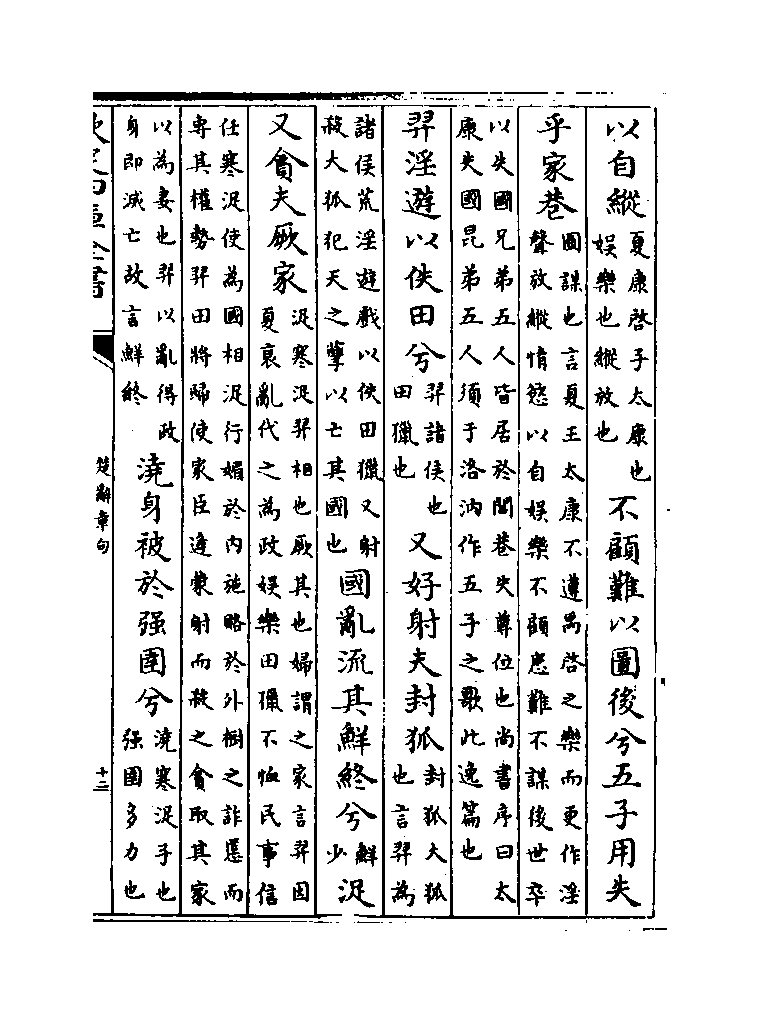 以自縱夏康啓子太康也娛樂也縱放也不顧難以圖後兮五子用失
乎家巷圖謀也言夏王太康不遵禹啓之樂而更作淫聲放縱情慾以自娛樂不顧患難不謀後世卒
以失國兄弟五人皆居於閭巷失尊位也尚書序曰太康失國昆弟五人須于洛汭作五子之歌此逸篇也
羿淫遊以佚田兮羿諸侯也田獵也又好射夫封狐封狐大狐也言羿為
諸侯荒淫遊戲以佚田獵又射殺大狐犯天之孽以亡其國也國亂流其鮮終兮鮮少浞
又貪夫厥家浞寒浞羿相也厥其也婦謂之家言羿因夏衰亂代之為政娛樂田獵不恤民事信
任寒浞使為國相浞行媚於內施賂於外樹之詐慝而專其權勢羿田將歸使家臣逄蒙射而殺之貪取其家
以為妻也羿以亂得政身即滅亡故言鮮終澆身被於强圉兮澆寒浞子也强圉多力也
楚辭章句
十二